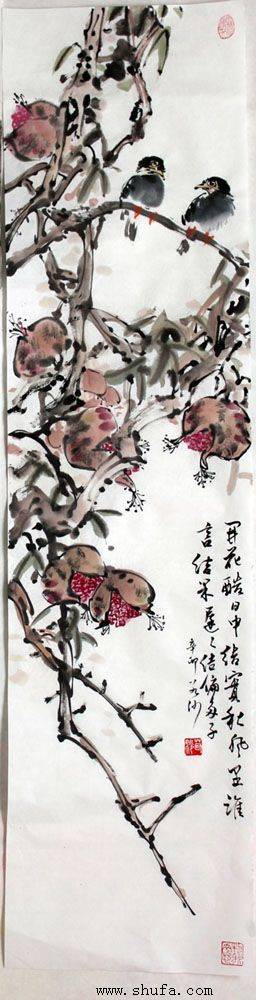 开花酷日中结实秋风里谁
言结果迟之结偏多子
辛卯
www.shufa.com